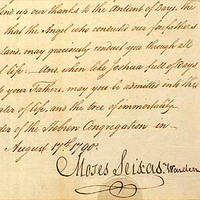 send up our thanks to the Antient of Days, the
that the Angel who conducted our forefathers
Land, may graciously conduct you through all
of life: And when like Joshua full of days,
to your Fathers, may you be admitted into the
water of life, and the tree of immortality
order of the Hebrew Congregation in
August 17th 1790.
Moses Seixas Warden